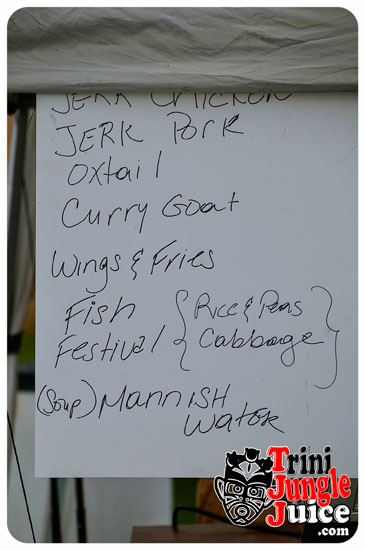 JERK CHICKEN
JERK PORK
Oxtail
Curry Goat
Wings & Fries
Fish { Rice & Peas }
Festival { Cabbage }
(Soup) MANNISH
Water
Trini
Jungle
Juice
.com